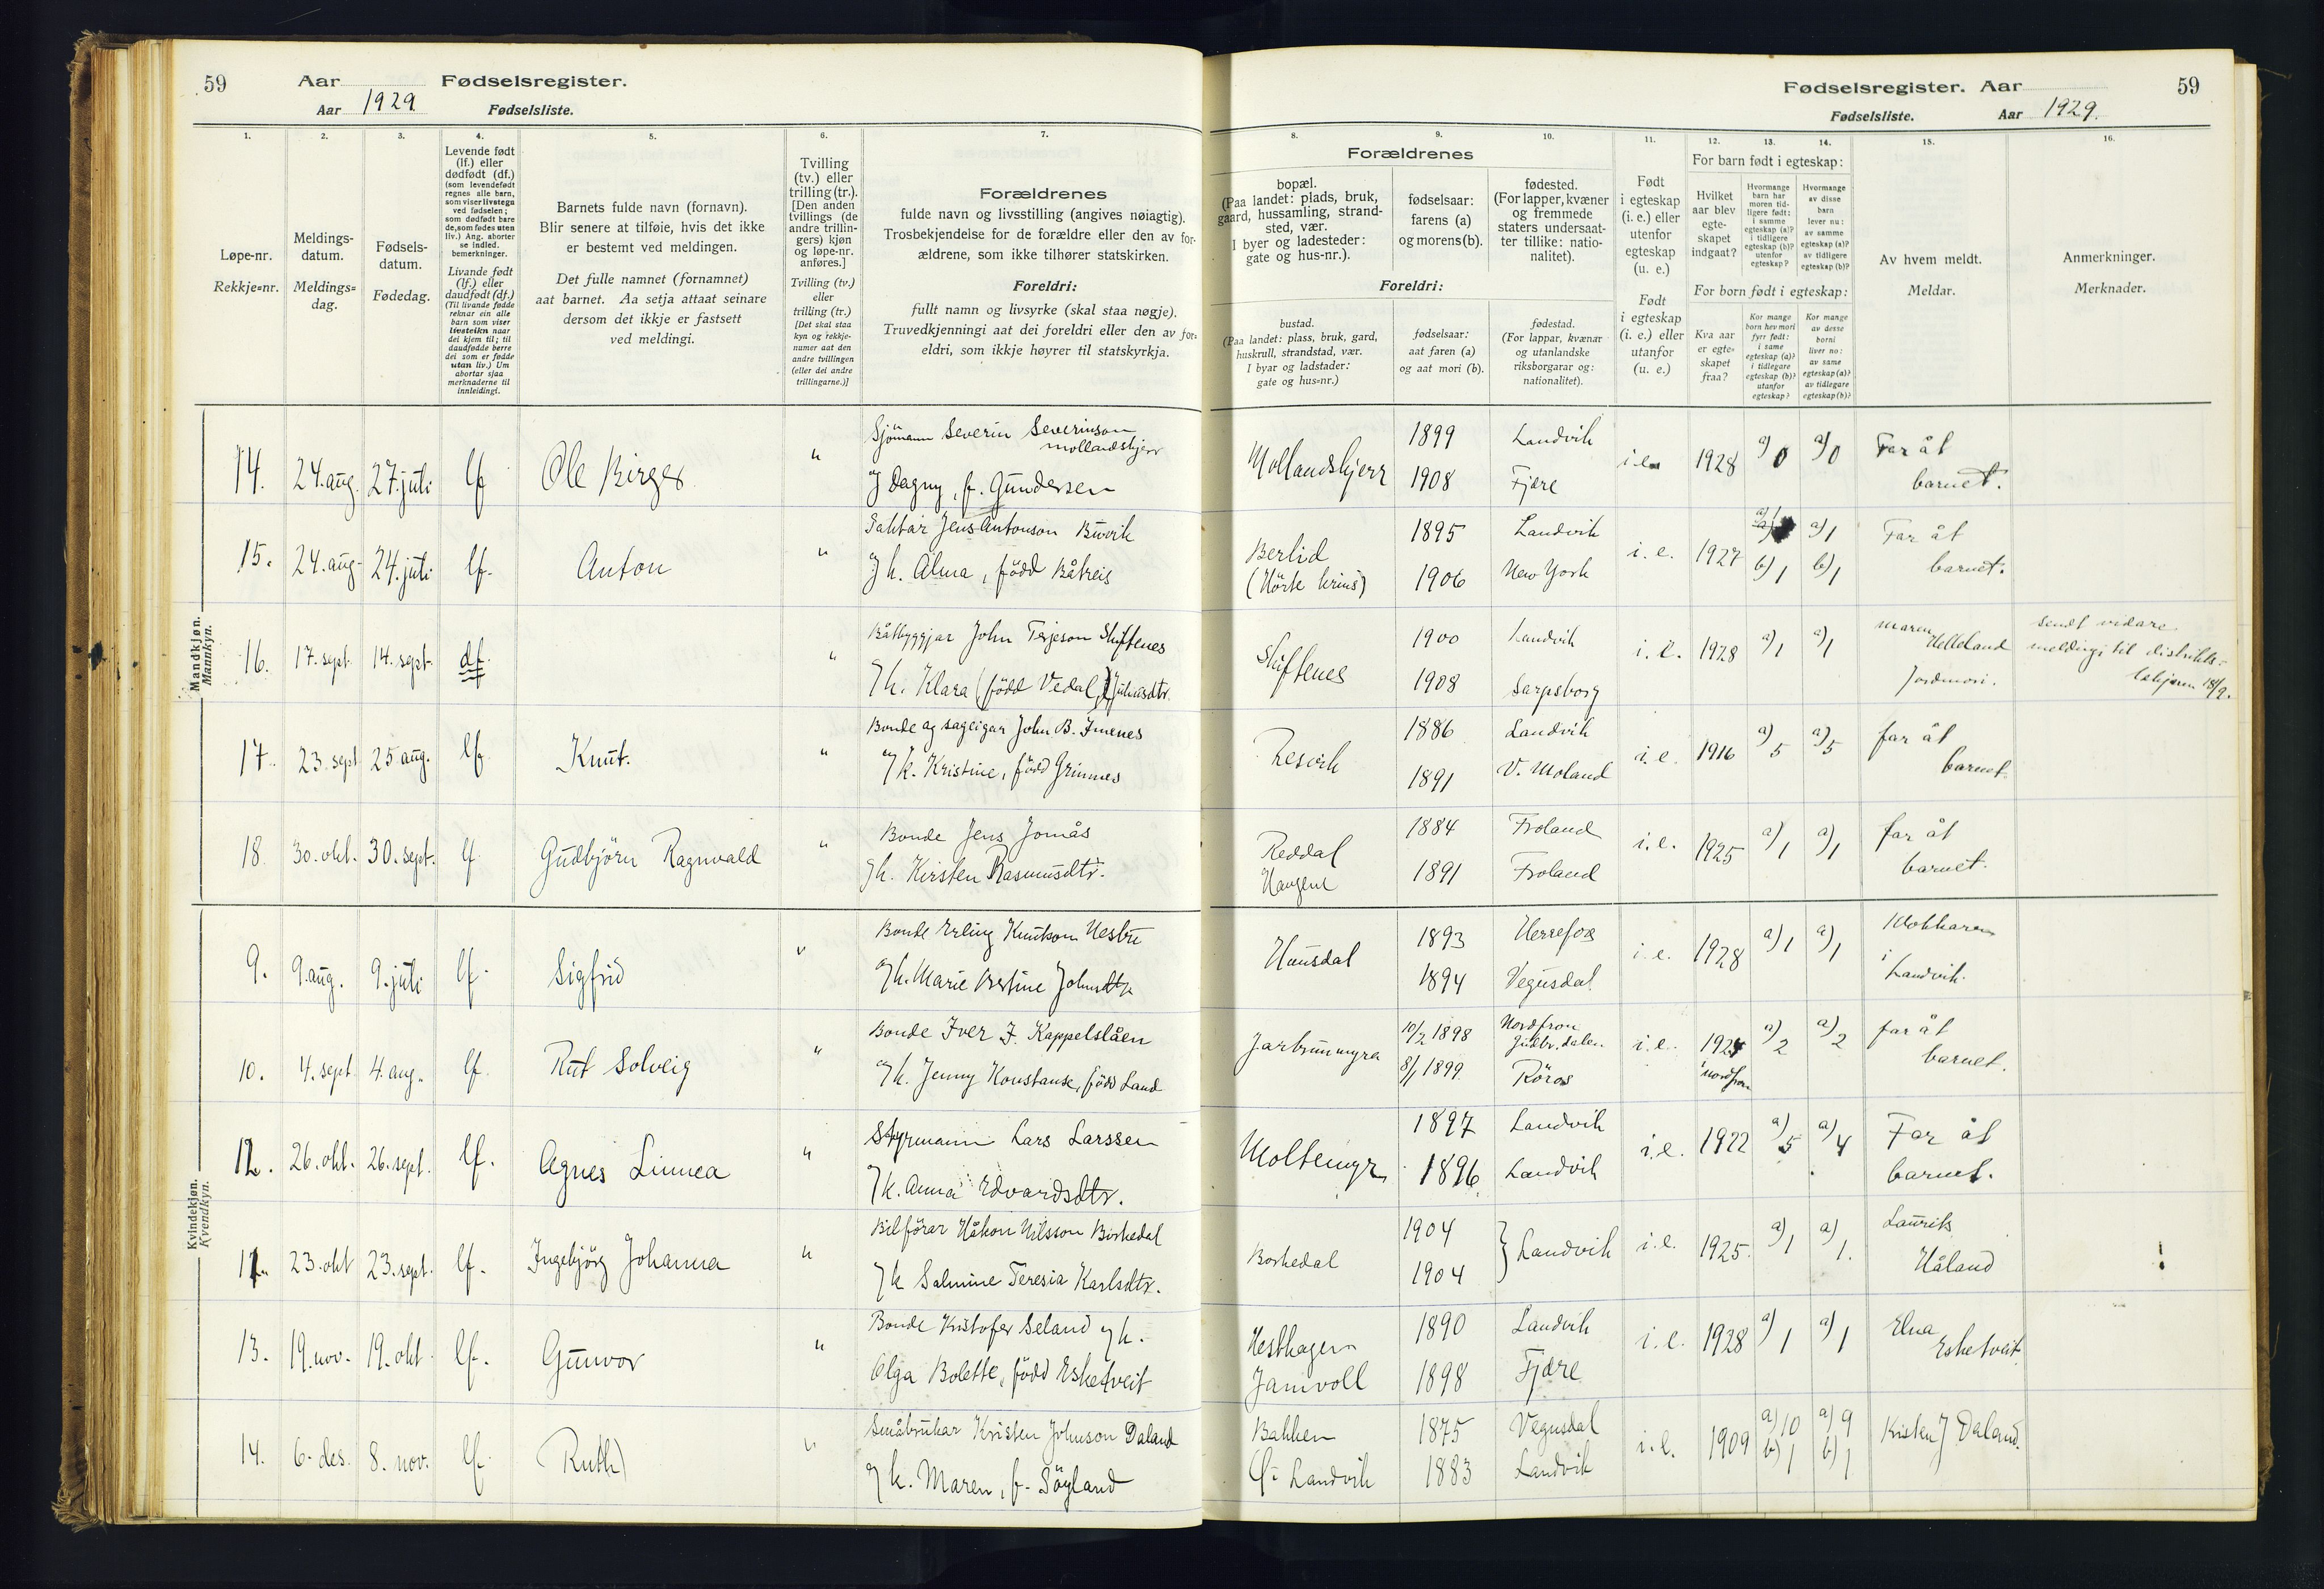 59 Aar Fødselsregister.
Aar 1929. Fødselsliste.
1. 2. 3. 4. 5. 6. 7.
Løpe-nr.
Rekkje=nr.
Meldings-
datum.
Meldings=
dag.
Fødsels-
datum.
Fødedag.
Levende født
(lf.) eller
dødfødt (df.)
(som levendefødt
regnes alle barn,
som viser livstegn
ved fødselen;
som dødfødt bare
de, som fødes uten
liv.) Ang. aborter
se indled.
bemerkninger.
Livande født
(lf.) eller
daudfødt (df.)
(Til livande fødde
reknar ein alle
barn som viser
livsteikn naar
dei kjem til; til
daudfødde berre
dei som er fødde
utan liv.) Um
abortar sjaa
merknaderne til
innleidingi.
Barnets fulde navn (fornavn).
Blir senere at tilføie, hvis det ikke
er bestemt ved meldingen.
Det fulle namnet (fornamnet)
aat barnet. Aa setja attaat seinare
dersom det ikkje er fastsett
ved meldingi.
Tvilling
(tv.) eller
trilling (tr.).
[Den anden
tvillings (de
andre trillin-
gers) kjøn
og løpe-nr.
anføres.]
Tvilling (tv.)
eller
trilling (tr.)
[Det skal staa
kyn og rekkje-
numer aat den
andre tvillingen
(eller dei andre
trillingarne.)]
Forældrenes
fulde navn og livsstilling (angives nøiagtig).
Trosbekjendelse for de forældre eller den av for-
ældrene, som ikke tilhører statskirken.
Foreldri:
fullt namn og livsyrke (skal staa nøgje).
Truvedkjenningi aat dei foreldri eller den av for=
eldri, som ikkje høyrer til statskyrkja.
Mandkjøn.
Mannkyn.
14. 24. aug. 27. juli lf Ole Birger "
Sjömann Severin Severinson
Mollandskjerr
og Dagny, f. Gundersen
15. 24. aug. 24. juli lf. Anton "
Saktar Jens Antonson Buvik
og k. Alma, född Båtreis
16. 17. sept. 14. sept. df. "
Båtbyggjar John Terjeson Skiftenes
og k. Klara (född Vedal,) Juliusdtr.
17. 23. sept 25 aug. lf Knut. "
Bonde og sageigar John B. Imenes
og k. Kristine, född Grimnes
18. 30. okt. 30. sept. lf Gudbjörn Ragnvald "
Bonde Jens Jomås
og k. Kirsten Rasmusdtr.
Kvindekjøn.
Kvendkyn.
9. 9. aug. 9. juli lf. Sigfrid "
Bonde Erling Knutson Nestu
og k. Marie Bertine Johnsdtr
10. 4. sept 4. aug. lf. Rut Solveig "
Bonde Iver I. Kappelslåen
og k. Jenny Konstanse, född Land
12. 26. okt. 26. sept. lf. Agnes Linnea "
Styrmann Lars Larssen
og k. Anna Edvardsdtr.
11. 23. okt 23. sept. lf. Ingebjörg Johanna "
Bilförar Håkon Nilsson Birkedal
og k Salmine Teresia Karlsdtr.
13. 19. nov. 19. okt. lf. Gunvor "
Bonde Kristofer Seland og k.
Olga Bolette, född Eskefveit
14. 6. des. 8. nov. lf. Ruth "
Småbrukar Kristen Johnson Daland
og k. Maren, f. Söyland
Fødselsregister. Aar 59
Fødselsliste. Aar 1929.
8. 9. 10. 11. 12. 13. 14. 15. 16.
Forældrenes
bopæl.
(Paa landet: plads, bruk,
gaard, hussamling, strand-
sted, vær.
I byer og ladesteder:
gate og hus-nr.).
fødselsaar:
farens (a)
og morens (b).
fødested.
(For lapper, kvæner
og fremmede
staters undersaat-
ter tillike: natio-
nalitet).
Foreldri:
bustad.
(Paa landet: plass, bruk, gard,
huskrull, strandstad, vær.
I byar og ladstader:
gate og hus=nr.)
fødselsaar:
aat faren (a)
og aat mori (b).
fødestad.
(For lappar, kvænar
og utanlandske
riksborgarar og:
nationalitet).
Født
i egteskap
(i. e.) eller
utenfor
egteskap
(u. e.)
Født
i egteskap
(i. e.) eller
utanfor
(u. e.)
For barn født i egteskap:
Hvilket
aar blev
egte-
skapet
indgaat?
Hvormange
barn har
moren tid-
ligere født:
i samme
egteskap (a)?
i tidligere
egteskap (b)?
utenfor
egteskap?
Hvormange
av disse
barn
lever nu:
av samme
egteskap (a)?
av tidligere
egteskap (b)?
For born født i egteskap:
Kva aar
er egte=
skapet
fraa?
Kor mange
born hev mori
fyrr født:
i same
egteskap (a)?
i tidlegare
egteskap (b)?
utanfor
egteskap?
Kor mange
av desse
borni
liver no:
av same
egteskap (a)?
av tidlegare
egteskap (b)?
Av hvem meldt.
Meldar.
Anmerkninger.
Merknader.
Mollandskjerr 1899 Landvik i. e. 1928 a) 0 a) 0 Far åt
1908 Fjære barnet.
Berlid 1895 Landvik i. e. 1927 a) 1 a) 1 Far åt
(Hörte krins) 1906 New York b) 1 b) 1 barnet.
Skiftenes 1900 Landvik i. e. 1928 a) 1 a) 1 Maren Helleland
1908 Sarpsborg Jordmori.
sendt vidare
meldingi til distrikts-
lækjaren 18/9.
Resvik 1886 Landvik i. e. 1916 a) 5 a) 5 far åt
1891 V. Moland barnet
Reddal 1884 Froland i. e. 1925 a) 1 a) 1 far åt
Haugene 1891 Froland barnet.
Hausdal 1893 Herefos i. e. 1928 a) 1 a) 1 Klokkaren
1894 Vegusdal i
Landvik.
Jarbrunmyra 10/2 1898 Nordfron
Gudbr. dalen i. e. 1924 a) 2 a) 2 far åt
8/1 1899. Röros i Nordfron barnet.
Moltemyr 1897 Landvik i. e. 1922 a) 5 a) 4 Far åt
1896 Landvik barnet.
Borkedal 1904 } Landvik i. e. 1925. a) 1 a) 1. Laurits
1904 Håland
Hesthagen 1890 Landvik i. e. 1928 a) 1 a) 1 Elna
Jamvoll 1898 Fjære Eskefveit.
Bakken 1875 Vegusdal i. e. 1909 a) 10 a) 9 Kristen J Daland.
i Landvik 1883 Landvik b) 1 b) 1